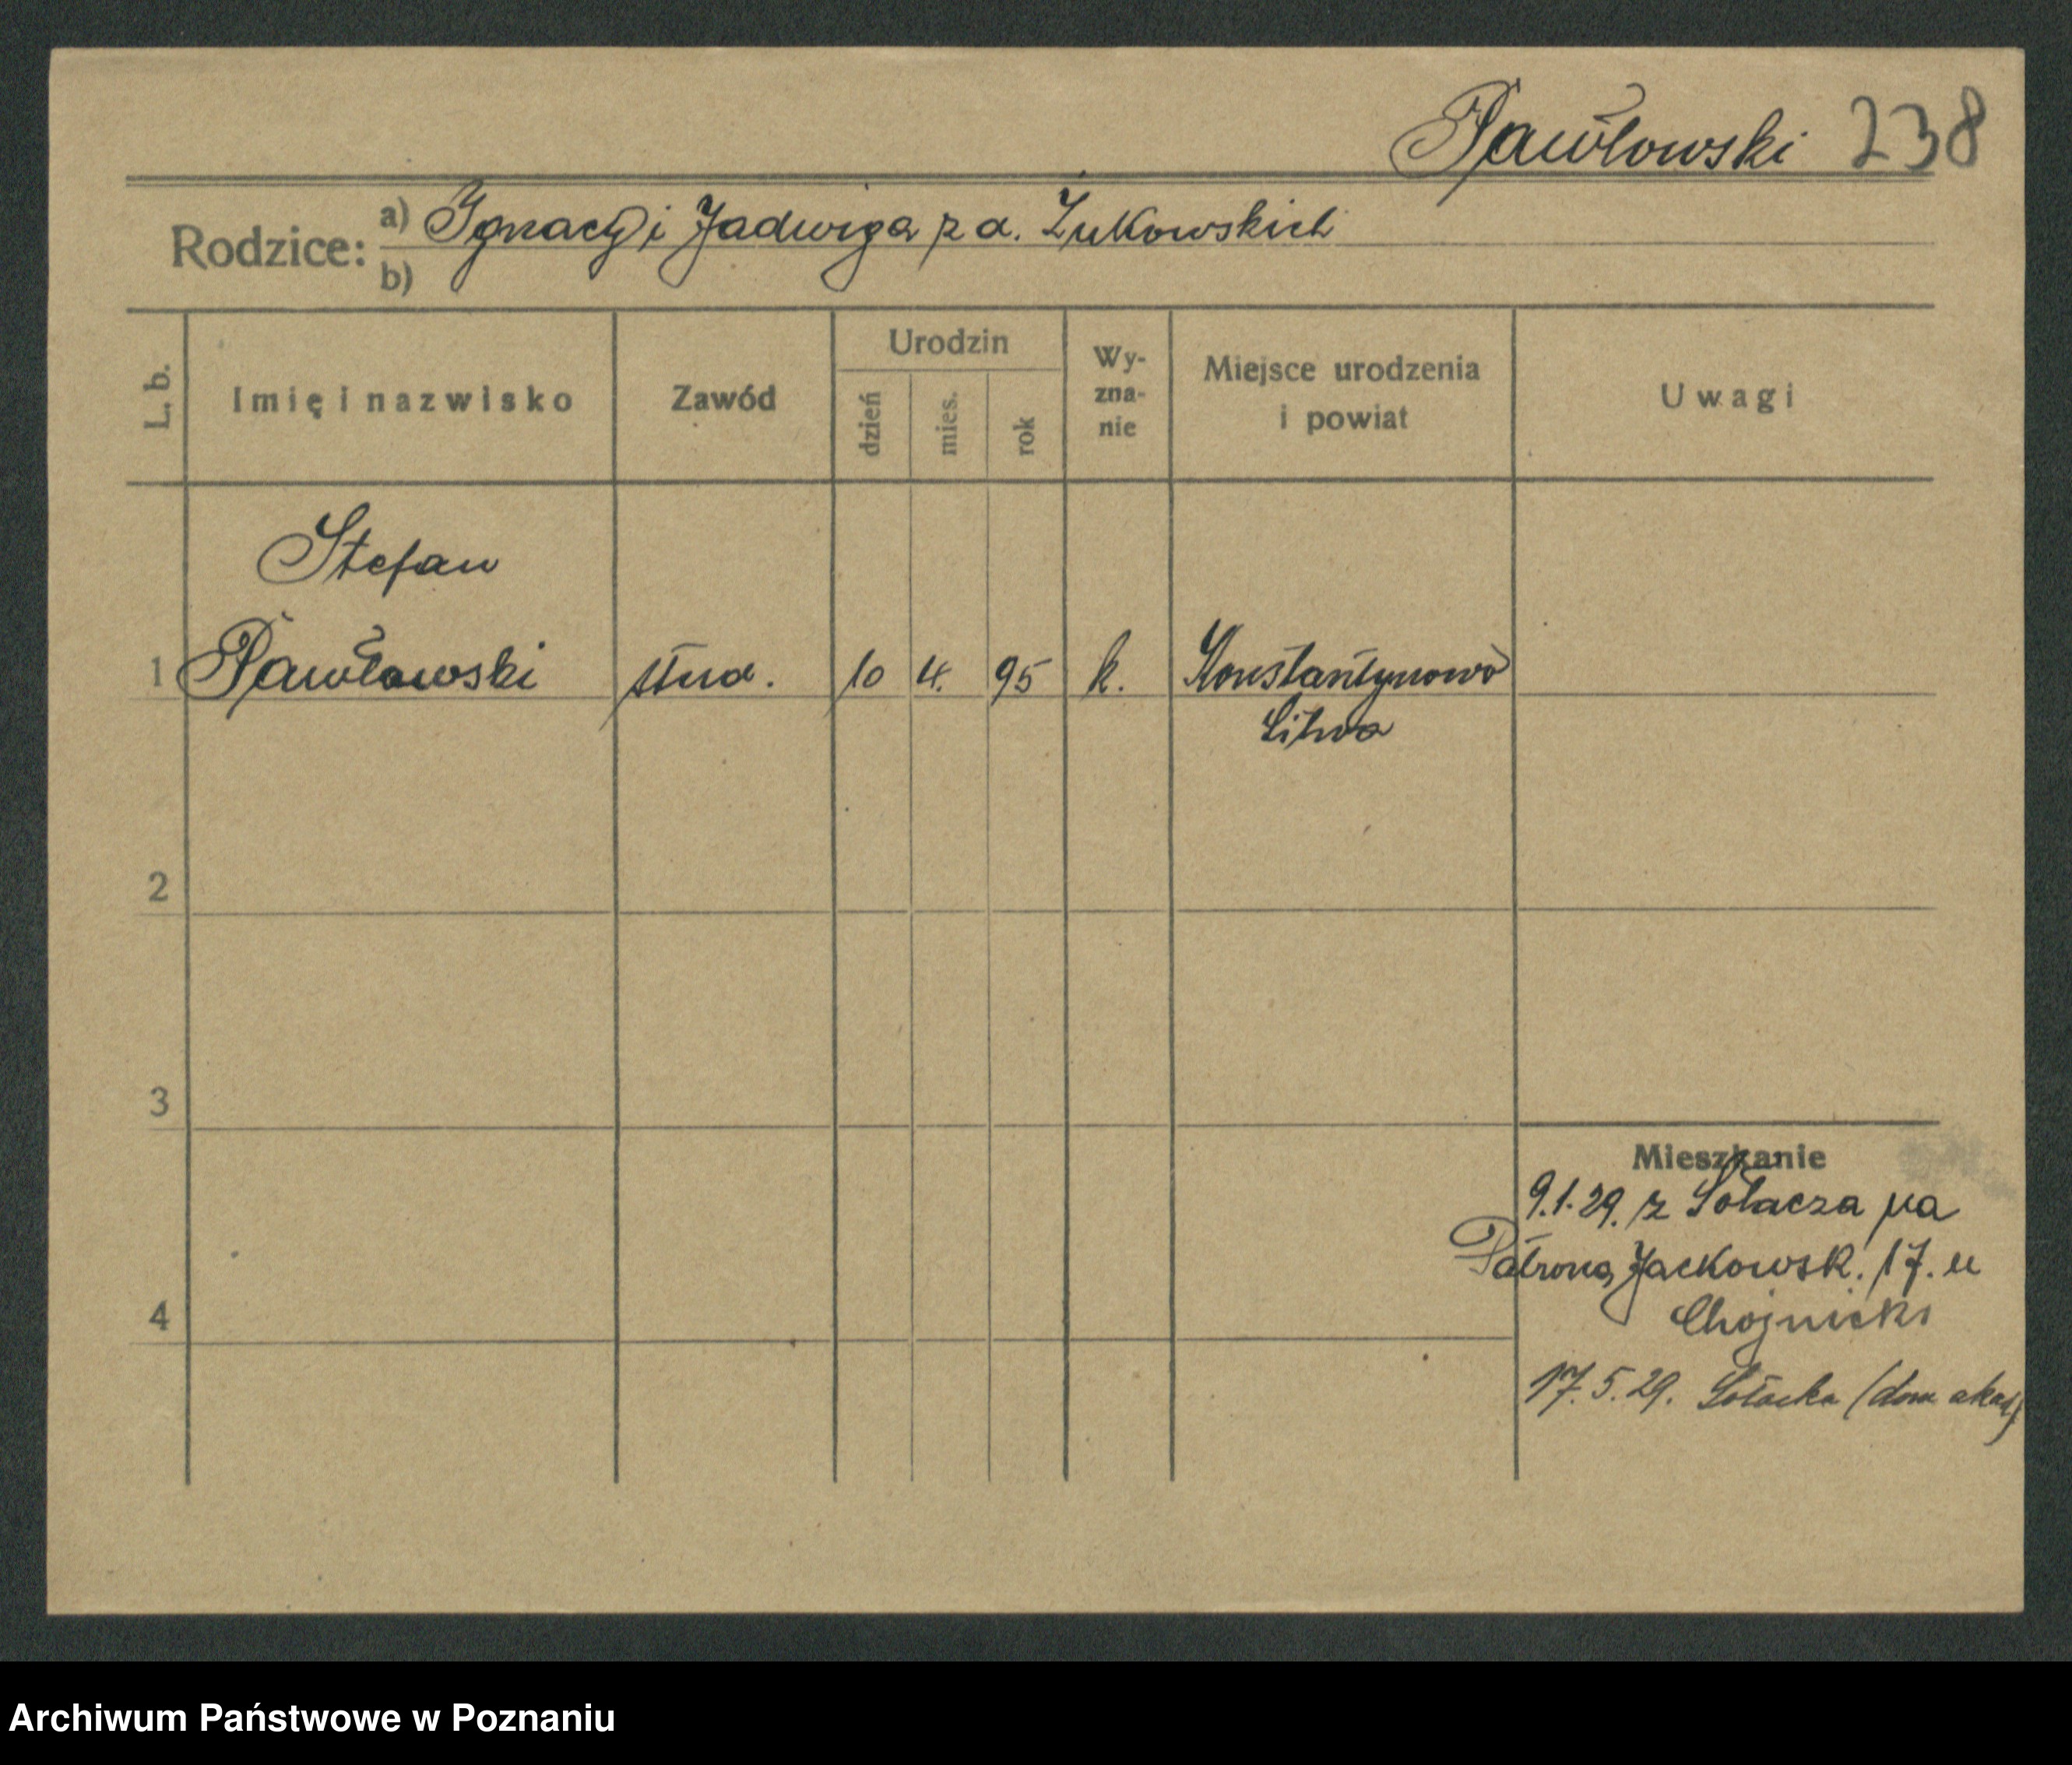 Pawłowski 238
Rodzice: a) Ignacy i Jadwiga z d. Żukowskich
b)
L. b.
Imię i nazwisko
Zawód
Urodzin
dzień
mies.
rok
Wy-
zna-
nie
Miejsce urodzenia
i powiat
Uwagi
Stefan
1 Pawłowski stud. 10 4. 95 k. Konstantynowo
Litwa
2
3
4
Mieszkanie
9.1.29. z Sołacza na
Patrona Jackowsk. 17. u
Chojnicki
17.5.29. Sołacka (dom akad)
Archiwum Państwowe w Poznaniu